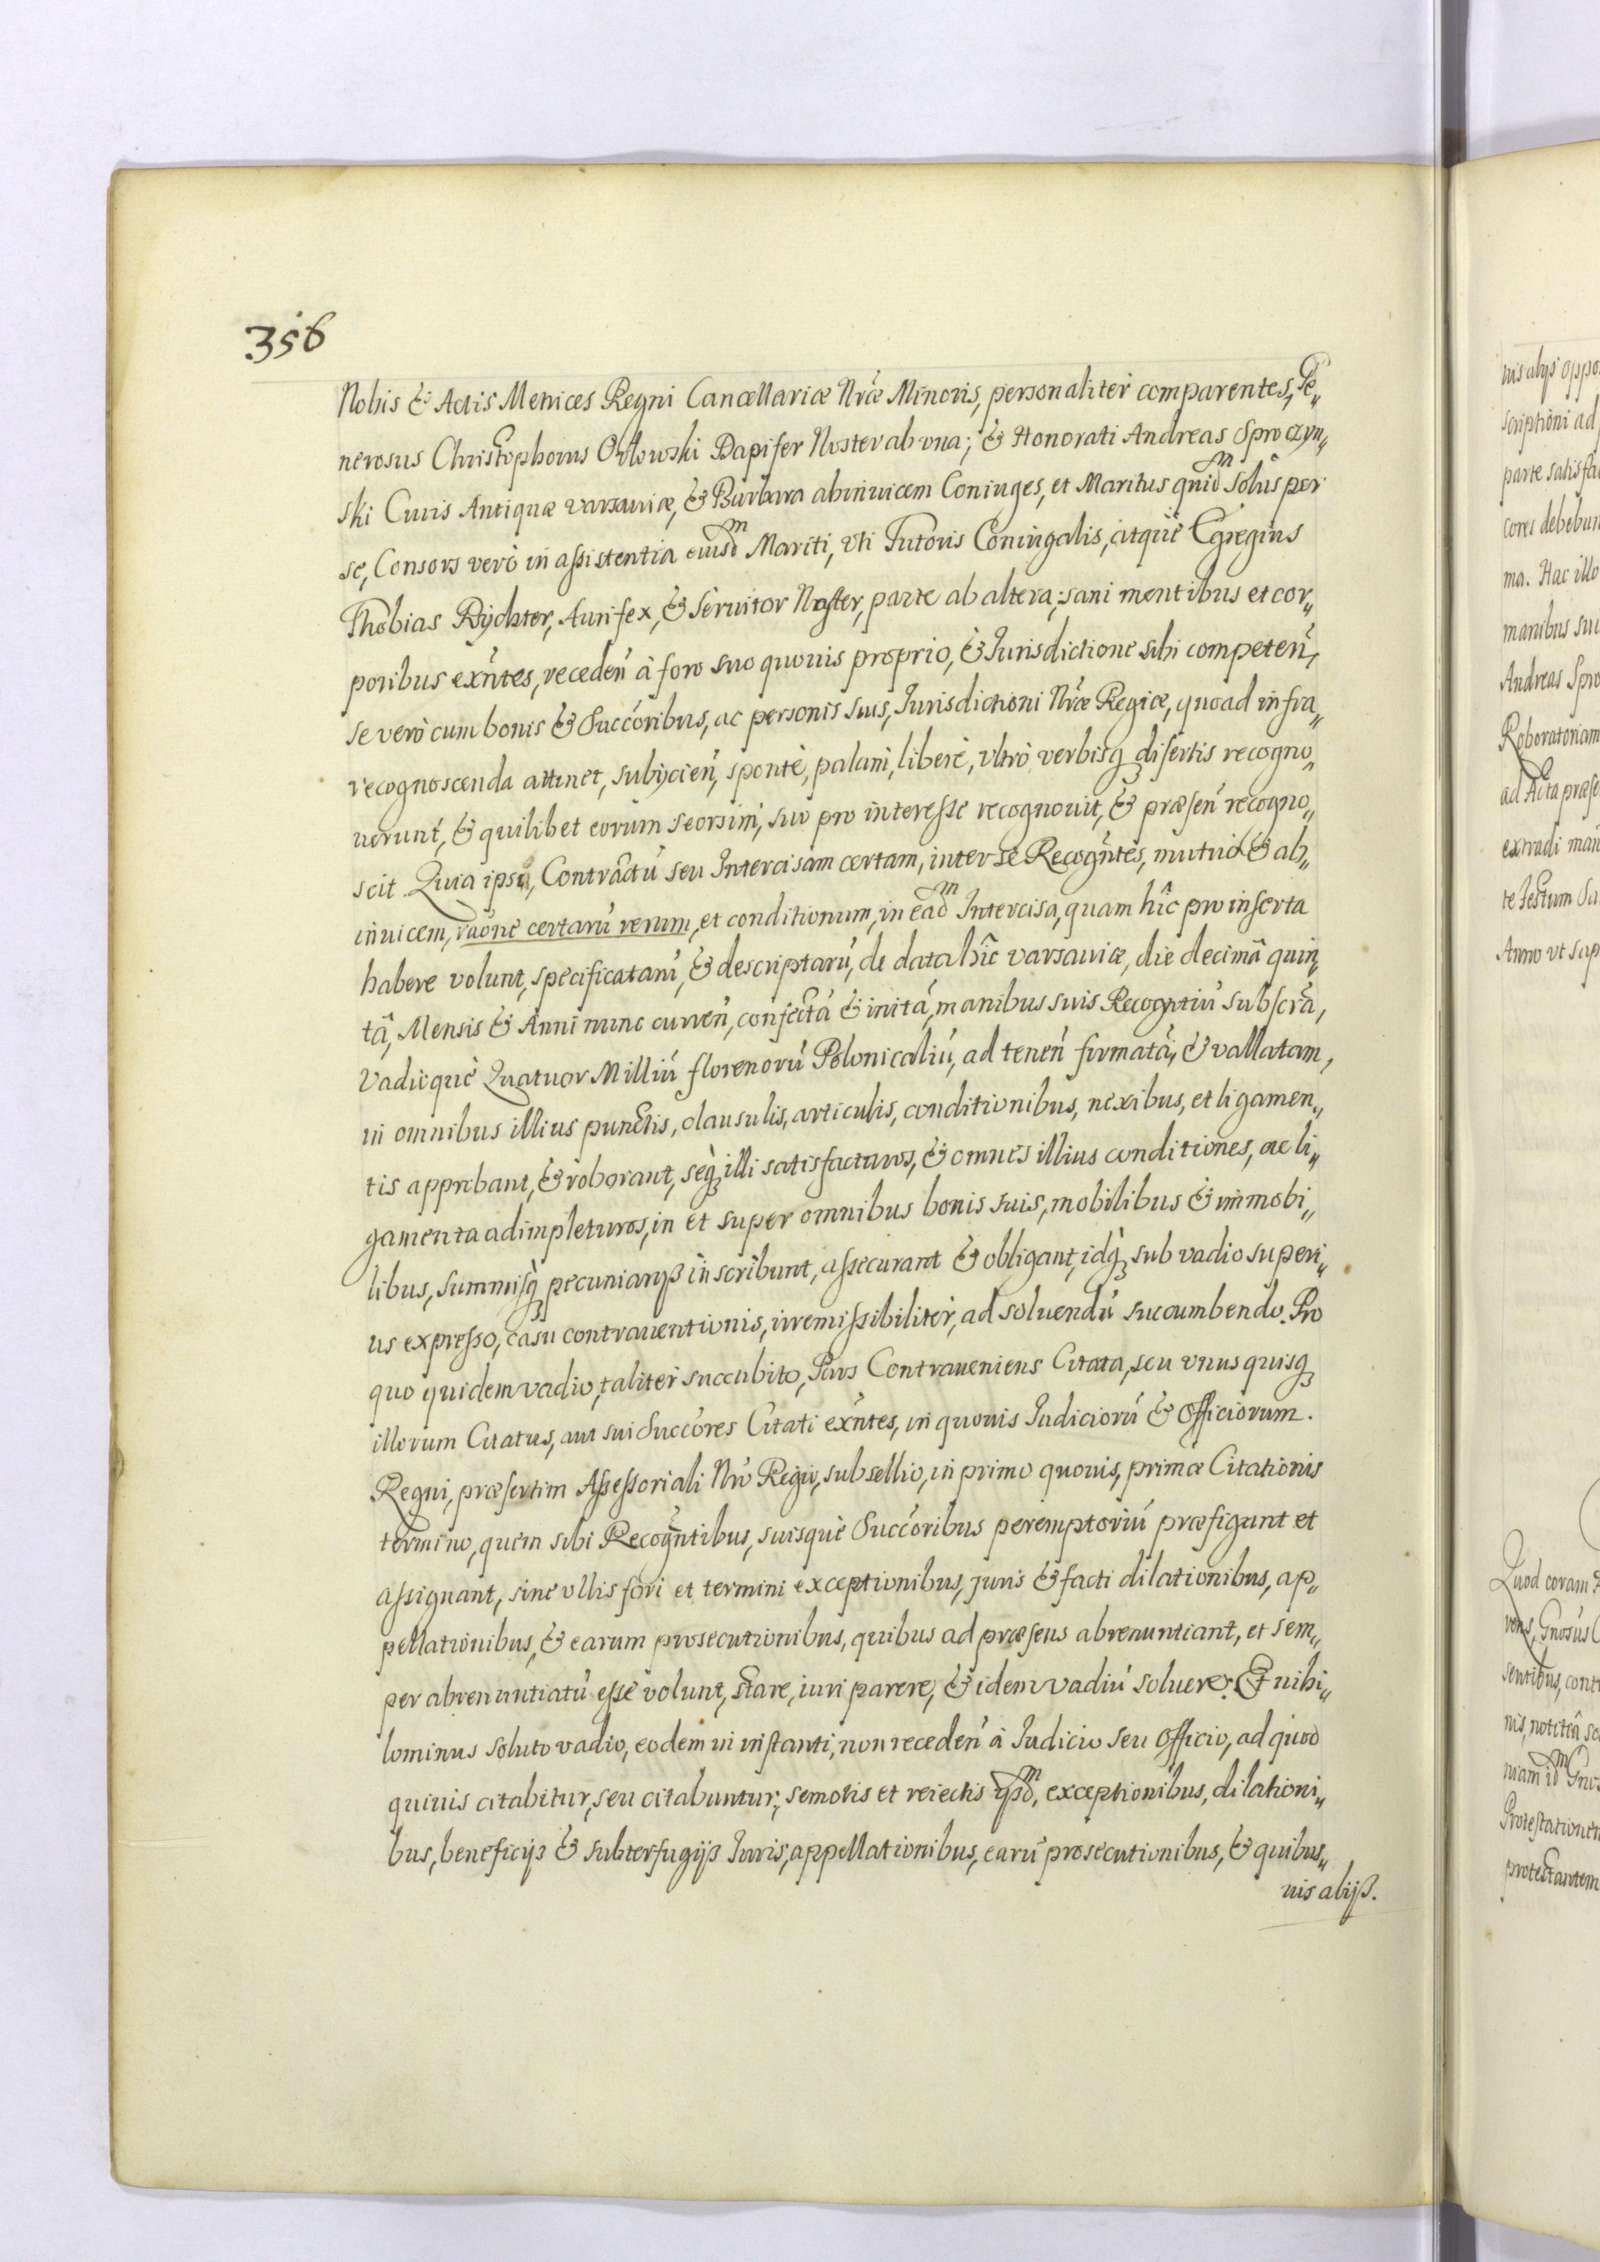 356
Nobis & Actis Metrices Regni Cancellariæ Nræ Minoris, personaliter comparentes, Ge„
nerosus Christophorus Orlowski Dapifer Noster ab vna; & Honorati Andreas Sproczyn„
ski Ciuis Antiquæ varsauiæ, & Barbara abinuicem Coniuges, et Maritus quidm solus per
se, Consors verò in assistentia eiusdm Mariti, vti Tutoris Coniugalis, atque Egregius
Thobias Rychter, Aurifex, & Seruitor Noster, parte ab altera; sani mentibus et cor„
poribus exntes, receden à foro suo quouis proprio, & Iurisdictione sibi competen,
se verò cum bonis & Succoribus, ac personis suis, Iurisdictioni Nræ Regiæ, quoad infra„
recognoscenda attinet, subijcien, spontè, palam, liberè, vltrò verbisq disertis recogno„
uerunt, & quilibet eorum seorsim, suo pro interesse recognouit, & præsen recogno„
scit Quia ipsi, Contractu seu Intercisam certam, inter se Recogntes, mutuò & ab„
inuicem, raone certaru rerum, et conditionum, in eadm Intercisa, quam hîc pro inserta
habere volunt, specificatam, & descriptaru, de data hîc varsauiæ, die decimâ quin„
tâ, Mensis & Anni nunc curren, confectâ & initâ, manibus suis Recogntiu subscrâ,
Vadijquè Quatuor Milliu florenorú Polonicaliú, ad tenen firmatâ, & vallatam,
in omnibus illius punctis, clausulis, articulis, conditionibus, nexibus, et ligamen„
tis approbant, & roborant, seq illi satisfacturos, & omnes illius conditiones, ac li„
gamenta adimpleturos, in et super omnibus bonis suis, mobilibus & immobi„
libus, summisq pecuniarijs inscribunt, assecurant & obligant, idq sub vadio superi„
us expresso, casu contrauentionis, irremissibiliter, ad soluendú succumbendo. Pro
quo quidem vadio, taliter succubito, Pars Contraueniens Citata, seu vnus quisq
illorum Citatus, aut sui Succores Citati exntes, in quouis Iudiciorú & Officiorum.
Regni, præsertim Assessoriali Nro Regio, subsellio, in primo quouis, primæ Citationis
termino, quem sibi Recogntibus, suisquè Succoribus peremptoriú præfigunt et
assignant, sine vllis fori et termini exceptionibus, juris & facti dilationibus, ap„
pellationibus, & earum prosecutionibus, quibus ad præsens abrenuntiant, et sem„
per abrenuntiatú esse volunt, stare, iuri parere, & idem vadiú soluere. Et nihi„
lominus soluto vadio, eodem in instanti, non receden à Iudicio seu Officio, ad quod
quiuis citabitur, seu citabuntur; semotis et reiectis ijsdm, exceptionibus, dilationi„
bus, beneficijs & subterfugijs Iuris, appellationibus, earú prosecutionibus, & quibus„
uis alijs.